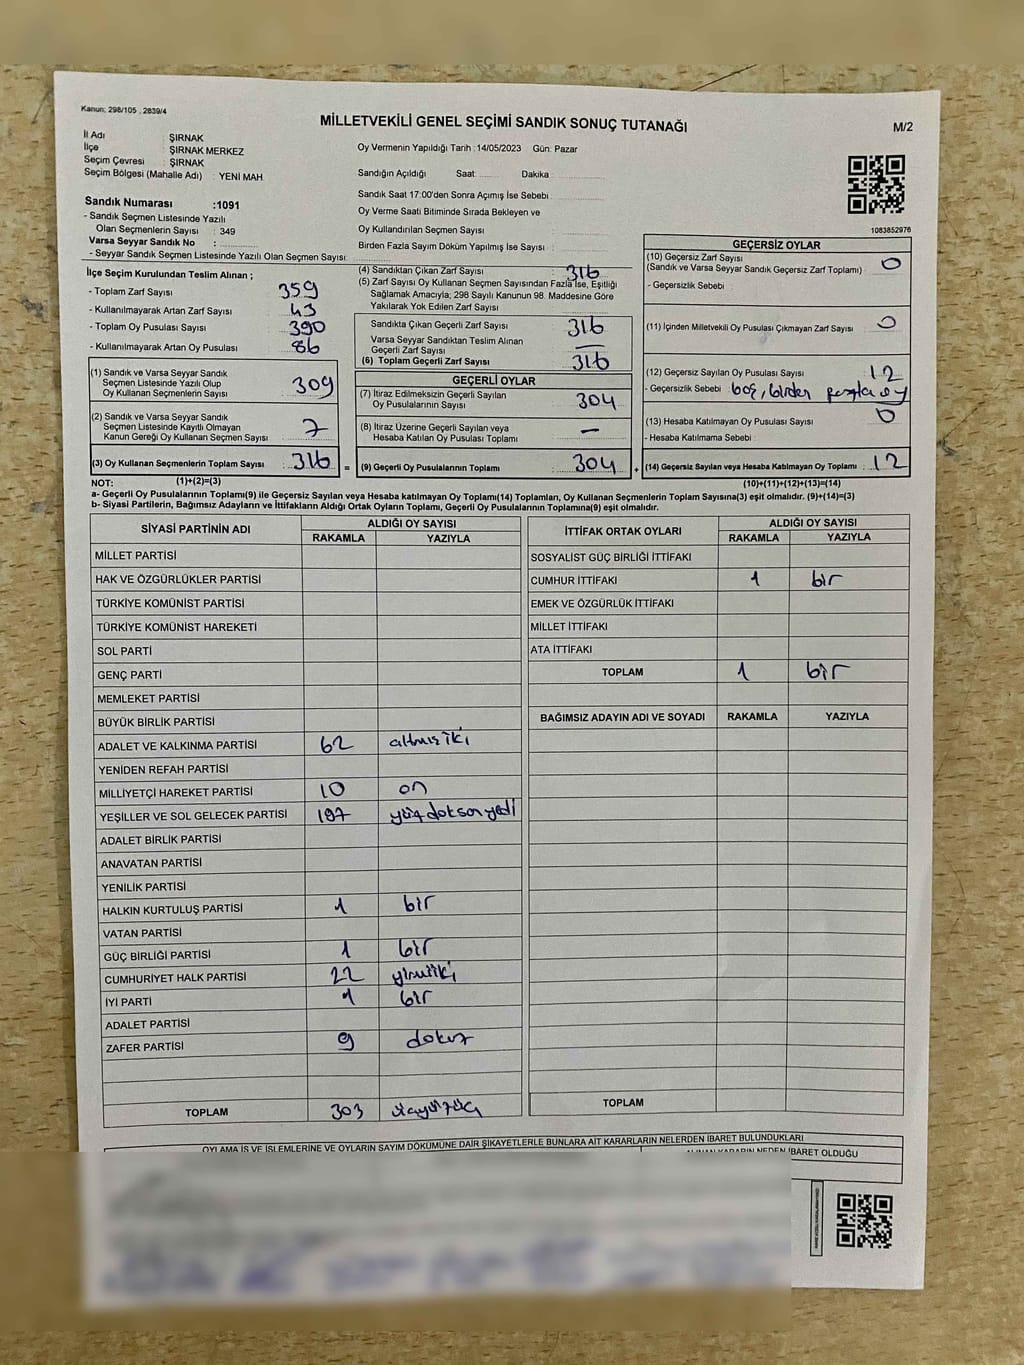 Kanun: 298/105 , 2839/4
MİLLETVEKİLİ GENEL SEÇİMİ SANDIK SONUÇ TUTANAĞI
M/2
İl Adı ŞIRNAK
İlçe ŞIRNAK MERKEZ
Seçim Çevresi : ŞIRNAK
Seçim Bölgesi (Mahalle Adı) : YENİ MAH.
Oy Vermenin Yapıldığı Tarih : 14/05/2023 Gün: Pazar
Sandığın Açıldığı Saat: Dakika :
Sandık Saat 17:00'den Sonra Açımış İse Sebebi :
Oy Verme Saati Bitiminde Sırada Bekleyen ve
Oy Kullandırılan Seçmen Sayısı :
Birden Fazla Sayım Döküm Yapılmış İse Sayısı :
1083852976
Sandık Numarası :1091
- Sandık Seçmen Listesinde Yazılı
Olan Seçmenlerin Sayısı : 349
Varsa Seyyar Sandık No :
- Seyyar Sandık Seçmen Listesinde Yazılı Olan Seçmen Sayısı:
İlçe Seçim Kurulundan Teslim Alınan ;
- Toplam Zarf Sayısı 359
- Kullanılmayarak Artan Zarf Sayısı : 43
- Toplam Oy Pusulası Sayısı 390
- Kullanılmayarak Artan Oy Pusulası : 86
(1) Sandık ve Varsa Seyyar Sandık
Seçmen Listesinde Yazılı Olup
Oy Kullanan Seçmenlerin Sayısı : 309
(2) Sandık ve Varsa Seyyar Sandık
Seçmen Listesinde Kayıtlı Olmayan
Kanun Gereği Oy Kullanan Seçmen Sayısı : 7
(3) Oy Kullanan Seçmenlerin Toplam Sayısı : 316
=
(4) Sandıktan Çıkan Zarf Sayısı : 316
(5) Zarf Sayısı Oy Kullanan Seçmen Sayısından Fazla İse, Eşitliği
Sağlamak Amacıyla; 298 Sayılı Kanunun 98. Maddesine Göre
Yakılarak Yok Edilen Zarf Sayısı :
Sandıkta Çıkan Geçerli Zarf Sayısı : 316
Varsa Seyyar Sandıktan Teslim Alınan
Geçerli Zarf Sayısı : —
(6) Toplam Geçerli Zarf Sayısı : 316
GEÇERLİ OYLAR
(7) İtiraz Edilmeksizin Geçerli Sayılan
Oy Pusulalarının Sayısı : 304
(8) İtiraz Üzerine Geçerli Sayılan veya
Hesaba Katılan Oy Pusulası Toplamı : —
(9) Geçerli Oy Pusulalarının Toplamı : 304
+
GEÇERSİZ OYLAR
(10) Geçersiz Zarf Sayısı
(Sandık ve Varsa Seyyar Sandık Geçersiz Zarf Toplamı) : 0
- Geçersizlik Sebebi
(11) İçinden Milletvekili Oy Pusulası Çıkmayan Zarf Sayısı : 0
(12) Geçersiz Sayılan Oy Pusulası Sayısı : 12
- Geçersizlik Sebebi boş, birden fazla oy
(13) Hesaba Katılmayan Oy Pusulası Sayısı : 0
- Hesaba Katılmama Sebebi
(14) Geçersiz Sayılan veya Hesaba Katılmayan Oy Toplamı : 12
NOT: (1)+(2)=(3)
(10)+(11)+(12)+(13)=(14)
a- Geçerli Oy Pusulalarının Toplamı(9) ile Geçersiz Sayılan veya Hesaba katılmayan Oy Toplamı(14) Toplamları, Oy Kullanan Seçmenlerin Toplam Sayısına(3) eşit olmalıdır. (9)+(14)=(3)
b- Siyasi Partilerin, Bağımsız Adayların ve İttifakların Aldığı Ortak Oyların Toplamı, Geçerli Oy Pusulalarının Toplamına(9) eşit olmalıdır.
SİYASİ PARTİNİN ADI ALDIĞI OY SAYISI
RAKAMLA YAZIYLA
MİLLET PARTİSİ
HAK VE ÖZGÜRLÜKLER PARTİSİ
TÜRKİYE KOMÜNİST PARTİSİ
TÜRKİYE KOMÜNİST HAREKETİ
SOL PARTİ
GENÇ PARTİ
MEMLEKET PARTİSİ
BÜYÜK BİRLİK PARTİSİ
ADALET VE KALKINMA PARTİSİ 62 altmış iki
YENİDEN REFAH PARTİSİ
MİLLİYETÇİ HAREKET PARTİSİ 10 on
YEŞİLLER VE SOL GELECEK PARTİSİ 197 yüz doksan yedi
ADALET BİRLİK PARTİSİ
ANAVATAN PARTİSİ
YENİLİK PARTİSİ
HALKIN KURTULUŞ PARTİSİ 1 bir
VATAN PARTİSİ
GÜÇ BİRLİĞİ PARTİSİ 1 bir
CUMHURİYET HALK PARTİSİ 22 yirmiiki
İYİ PARTİ 1 bir
ADALET PARTİSİ
ZAFER PARTİSİ 9 dokuz
TOPLAM 303 üçyüzüç
İTTİFAK ORTAK OYLARI ALDIĞI OY SAYISI
RAKAMLA YAZIYLA
SOSYALİST GÜÇ BİRLİĞİ İTTİFAKI
CUMHUR İTTİFAKI 1 bir
EMEK VE ÖZGÜRLÜK İTTİFAKI
MİLLET İTTİFAKI
ATA İTTİFAKI
TOPLAM 1 bir
BAĞIMSIZ ADAYIN ADI VE SOYADI RAKAMLA YAZIYLA
TOPLAM
OYLAMA İŞ VE İŞLEMLERİNE VE OYLARIN SAYIM DÖKÜMÜNE DAİR ŞİKAYETLERLE BUNLARA AİT KARARLARIN NELERDEN İBARET BULUNDUKLARI
KARARIN NEDEN İBARET OLDUĞU